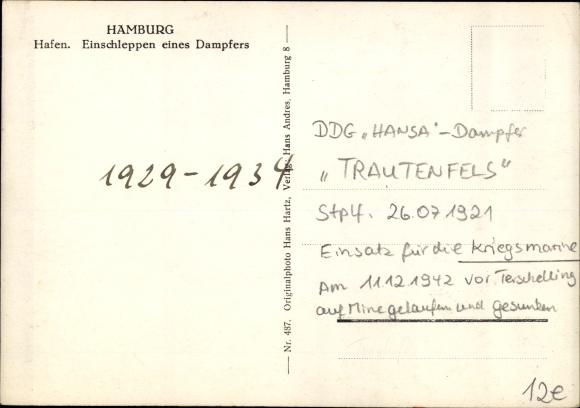 HAMBURG
Hafen. Einschleppen eines Dampfers
1929-1934
Nr. 487. Originalphoto Hans Hartz, Verlag Hans Andres, Hamburg 8
DDG „HANSA"-Dampfer
„TRAUTENFELS"
Stplf. 26.07 1921
Einsatz für die Kriegsmarine
Am 11.12.1942 vor Terschelling
auf Mine gelaufen und gesunken
12€